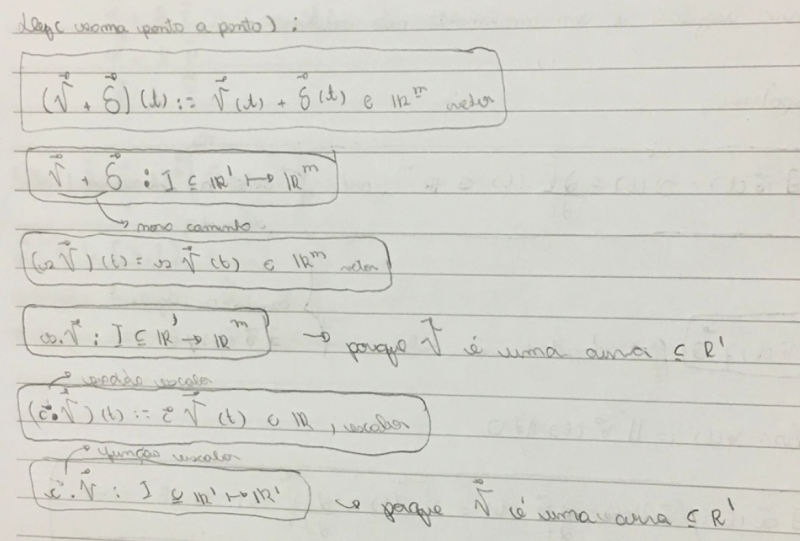 (soma ponto a ponto) :
(γ⃗ + δ⃗)(t) := γ⃗(t) + δ⃗(t) ∈ ℝᵐ vetor
γ⃗ + δ⃗ : I ⊆ ℝ¹ ↦ ℝᵐ
→ novo caminho
γ⃗)(t) = γ⃗(t) ∈ ℝᵐ vetor
γ⃗ : I ⊆ ℝ¹ → ℝᵐ → porque γ⃗ é uma curva ⊆ ℝ¹
→ escalar
(c⃗.γ⃗)(t) := c⃗ γ⃗(t) ∈ ℝ, escalar
→ função escalar
c⃗.γ⃗ : I ⊆ ℝ¹ ↦ ℝ¹ → porque γ⃗ é uma curva ⊆ ℝ¹